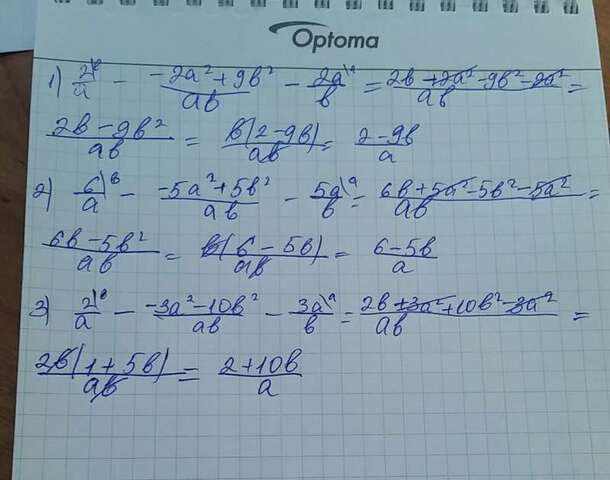 Optoma
1) 2\ᵇ/a - (-2a²+9b²)/ab - 2a\ᵃ/b = (2b+2a²-9b²-2a²)/ab =
(2b-9b²)/ab = b(2-9b)/ab = (2-9b)/a
2) 6\ᵇ/a - (-5a²+5b²)/ab - 5a\ᵃ/b = (6b+5a²-5b²-5a²)/ab =
(6b-5b²)/ab = b(6-5b)/ab = (6-5b)/a
3) 2\ᵇ/a - (-3a²-10b²)/ab - 3a\ᵃ/b = (2b+3a²+10b²-3a²)/ab =
2b(1+5b)/ab = (2+10b)/a